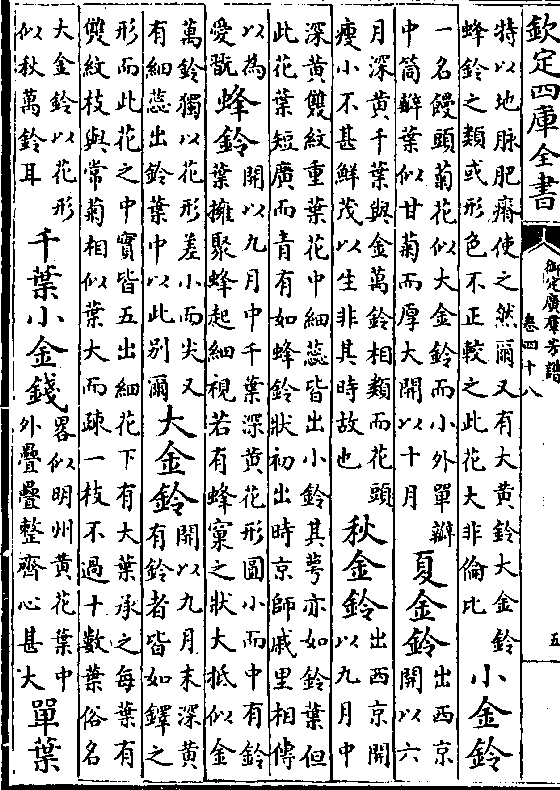 欽定四庫全書
御定廣羣芳譜
卷四十八
五
特以地脉肥瘠使之然爾又有大黄鈴大金鈴
蜂鈴之類或形色不正較之此花大非倫比
小金鈴
一名饅頭菊花似大金鈴而小外單瓣
中筒瓣葉似甘菊而厚大開以十月
夏金鈴
出西京
開以六
月深黄千葉與金萬鈴相類而花頭
瘦小不甚鮮茂以生非其時故也
秋金鈴
出西京開
以九月中
深黄雙紋重葉花中細蕊皆出小鈴其萼亦如鈴葉但
此花葉短廣而青有如蜂鈴狀初出時京師戚里相傳
以為
愛翫
蜂鈴
開以九月中千葉深黄花形圓小而中有鈴
葉擁聚蜂起細視若有蜂窠之狀大抵似金
萬鈴獨以花形差小而尖又
有細蕊出鈴葉中以此别爾
大金鈴
開以九月末深黄
有鈴者皆如鐸之
形而此花之中實皆五出細花下有大葉承之每葉有
雙紋枝與常菊相似葉大而疎一枝不過十數葉俗名
大金鈴以花形
似秋萬鈴耳
千葉小金錢
畧似明州黄花葉中
外疊疊整齊心甚大
單葉